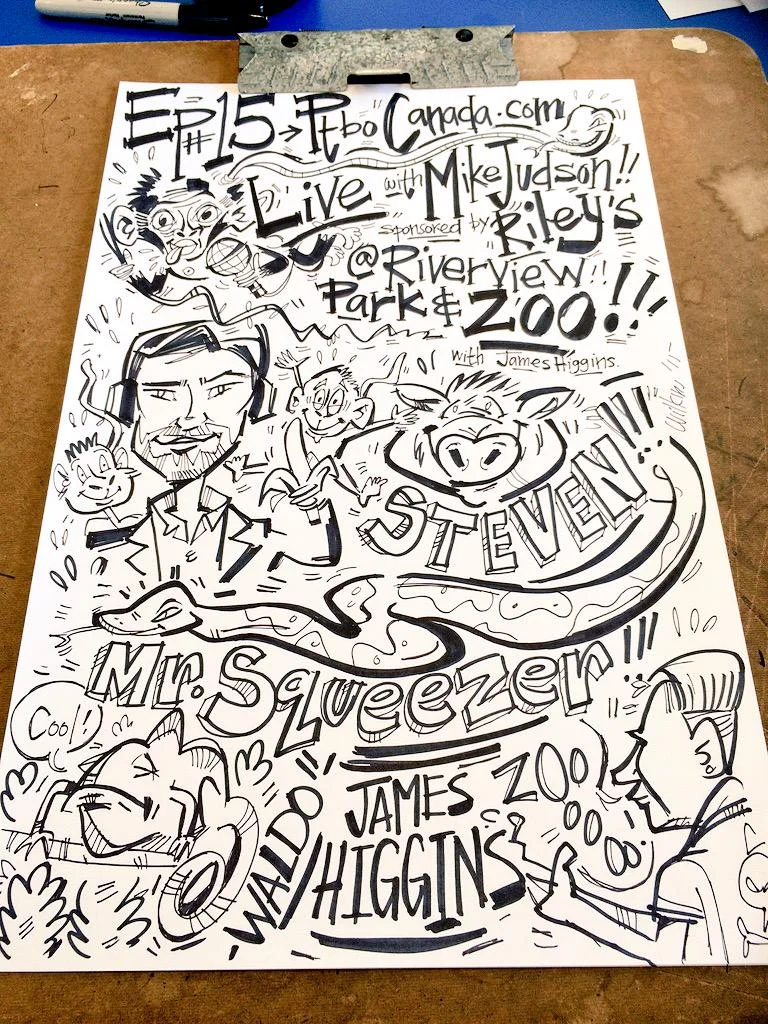 EP#15 → Ptbo Canada.com
Live with Mike Judson!!
sponsored by Riley's
@ Riverview
Park & Zoo!!!
with James Higgins.
'15
STEVEN!!!
Mr. Squeezer!!!
Cool!
WALDO
JAMES
HIGGINS
ZOO